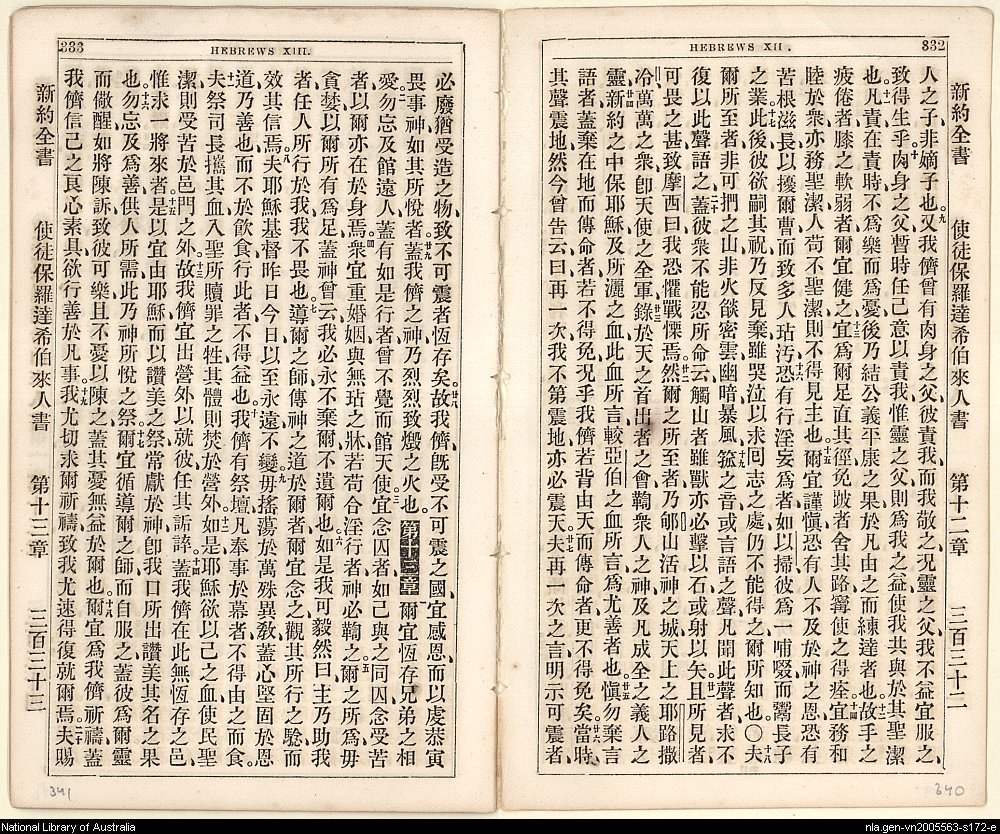 HEBREWS XII. 832
新約全書 使徒保羅達希伯來人書 第十二章 三百三十二
人之子、非嫡子也、九又我儕曾有肉身之父、彼責我、而我敬之、况靈之父、我不益宜服之、
致得生乎、十肉身之父、暫時任己意以責我、惟靈之父、則為我之益、使我共與於其聖潔
也、十一凡責在責時、不為樂而為憂、後乃結公義平康之果於凡由之而練達者也、十二故手之
疲倦者、膝之軟弱者、爾宜健之、十三宜爲爾足直其徑、免跛者舍其路、寧使之得痊、十四宜務和
睦於衆、亦務聖潔、人苟不聖潔、則不得見主也、十五爾宜謹慎、恐有人不及於神之恩、恐有
苦根滋長以擾爾曹、而致多人玷汚、十六恐有行淫妄爲者、如以掃彼爲一哺啜而鬻長子
之業、十七此後彼欲嗣其祝、乃反見棄、雖哭泣以求回志之處、仍不能得之、爾所知也、〇十八夫
爾所至者、非可捫之山、非火燄密雲、幽暗暴風、十九箛之音、或言語之聲、凡聞此聲者、求不
復以此聲語之、二十蓋彼衆不能忍所命云、觸山者雖獸亦必擊以石、或射以矢、廿一且所見者、
可畏之甚、致摩西曰、我恐懼戰慄焉、廿二然爾之所至者、乃郇山、活神之城、天上之耶路撒
冷、萬萬之衆、卽天使之全軍、廿三錄於天之首出者之會、鞫衆人之神、及凡成全之義人之
靈、廿四新約之中保耶穌、及所灑之血、此血所言、較亞伯之血所言爲尤善者也、廿五愼勿棄言
語者、蓋棄在地而傳命者、若不得免、况乎我儕若背由天而傳命者、更不得免矣、廿六當時
其聲震地、然今曾告云、曰、再一次、我不第震地、亦必震天、廿七夫再一次之言、明示可震者、
333 HEBREWS XIII.
必廢、猶受造之物、致不可震者恆存矣、廿八故我儕旣受不可震之國、宜感恩、而以虔恭寅
畏事神、如其所悅者、廿九蓋我儕之神、乃烈烈致燬之火也。第十三章 一爾宜恆存兄弟之相
愛、二勿忘及館遠人、蓋有如是行者、曾不覺而館天使、三宜念囚者、如己與之同囚、念受苦
者、以爾亦在於身焉、四衆宜重婚姻、與無玷之牀、若苟合淫行者、神必鞫之、五爾之所爲毋
貪婪、以爾所有爲足、蓋神曾云、我必永不棄爾、不遺爾也、六如是我可毅然曰、主乃助我
者、任人所行於我、我不畏也、七導爾之師傳神之道於爾者、爾宜念之、觀其所行之驗、而
效其信焉、八夫耶穌基督、昨日今日、以至永遠不變、九毋搖蕩於萬殊異敎、蓋心堅固於恩
道乃善也、而不於飲食、行此者不得益也、十我儕有祭壇、凡奉事於幕者、不得由之而食、
十一夫祭司長攜其血、入聖所贖罪之牲、其體則焚於營外、十二如是耶穌欲以己之血、使民聖
潔、則受苦於邑門之外、十三故我儕宜出營外以就彼、任其詬誶、十四蓋我儕在此無恆存之邑、
惟求一將來者、十五是以宜由耶穌、而以讚美之祭、常獻於神、卽我口所出讚美其名之果
也、十六勿忘及爲善供人所需、此乃神所悅之祭、十七爾宜循導爾之師、而自服之、蓋彼爲爾靈
而儆醒、如將陳訴、致彼可樂、且不憂以陳之、蓋其憂無益於爾也、十八爾宜爲我儕祈禱、蓋
我儕信己之良心素具、欲行善於凡事、十九我尤切求爾祈禱、致我尤速得復就爾焉、二十夫賜
新約全書 使徒保羅達希伯來人書 第十三章 三百三十三
341
340
National Library of Australia
nla.gen-vn2005563-s172-e